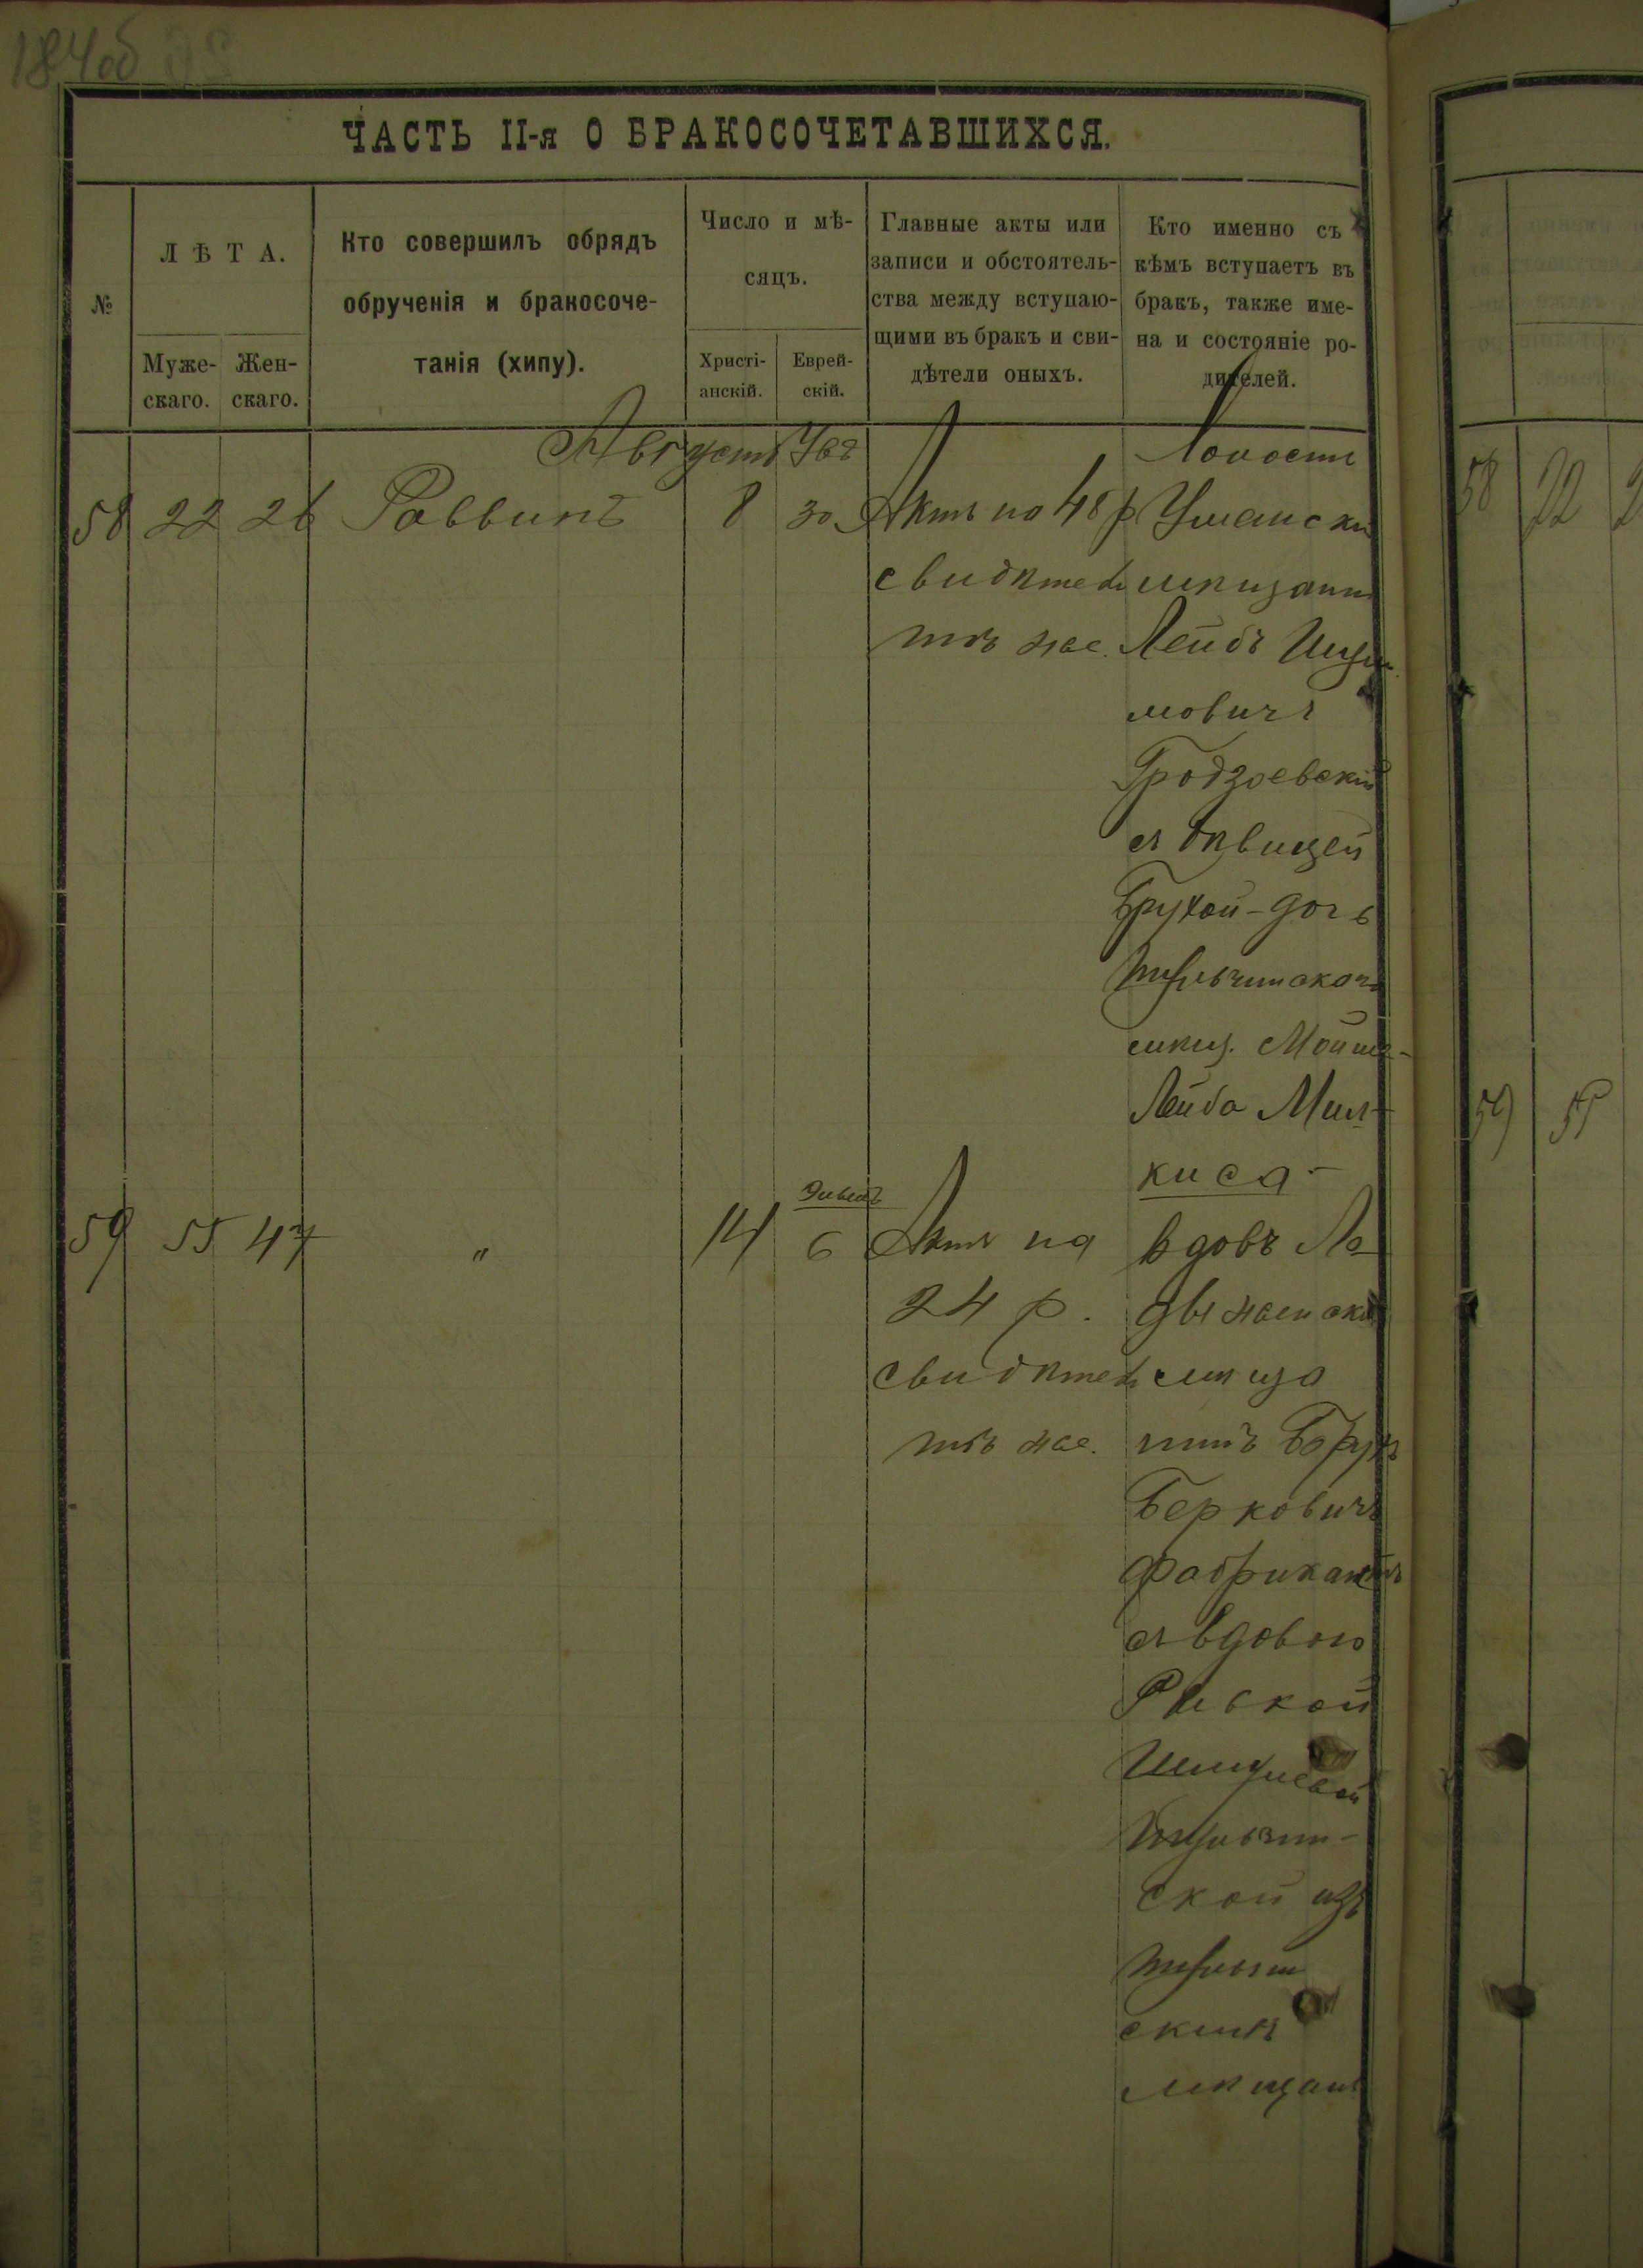 184об
ЧАСТЬ II-я О БРАКОСОЧЕТАВШИХСЯ.
№
ЛѢТА.
Муже-
скаго.
Жен-
скаго.
Кто совершилъ обрядъ
обрученія и бракосоче-
танія (хипу).
Число и мѣ-
сяцъ.
Христі-
анскій.
Еврей-
скій.
Главные акты или
записи и обстоятель-
ства между вступаю-
щими въ бракъ и сви-
дѣтели оныхъ.
Кто именно съ
кѣмъ вступаетъ въ
бракъ, также име-
на и состояніе ро-
дителей.
Августъ
58 22 26 Раввинъ 8 30 Актъ на 48 р
свидѣтели
тѣ же.
Холостъ
Уманскій
мѣщанинъ
Лейбъ
мовичъ
Гродзоевскій
съ дѣвицей
Брухой-дочь
мѣщ. Мойше-
Лейба Мил-
киса-
59 55 47 " 14 6 Актъ на
24 р.
свидѣтели
тѣ же.
Вдовъ Ла-
дыженскій
мѣща
нинъ Борухъ
Берковичъ
Фабрикантъ
съ вдовою
Ривкой
ской изъ
скихъ
мѣщанъ
58 22 2
59 55